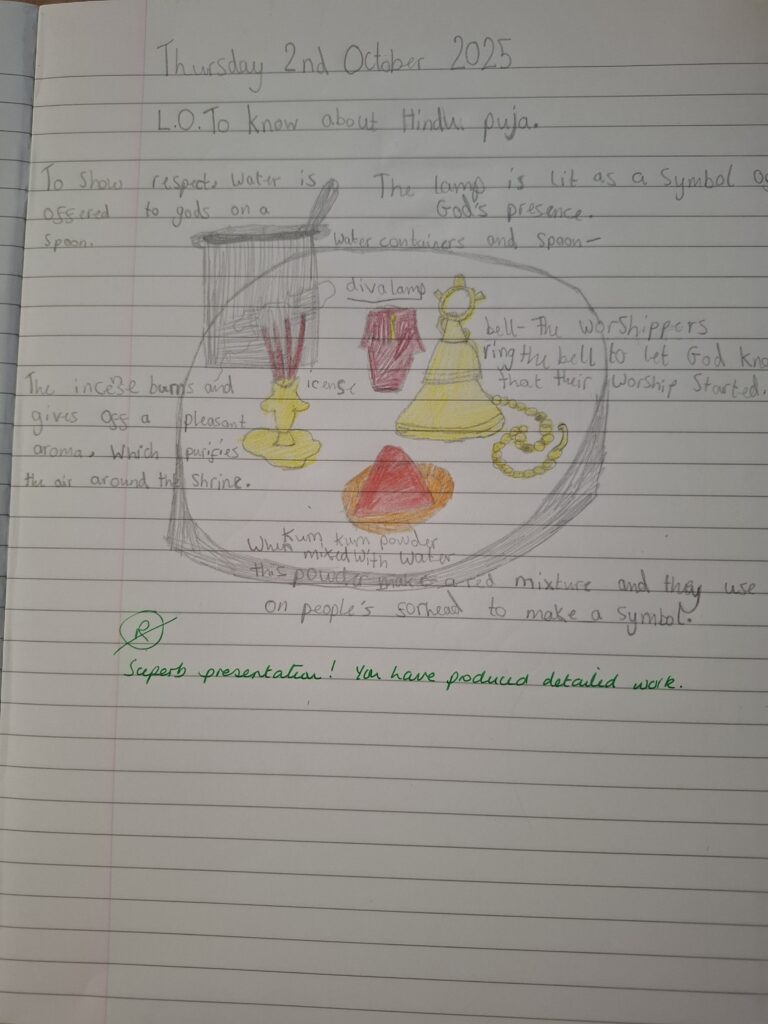 Thursday 2nd October 2025
L.O. To know about Hindu puja.
To show respect, water is
offered to gods on a
spoon.
The lamp is lit as a symbol of
God's presence.
water containers and spoon-
diva lamp
bell- The worshippers
ring the bell to let God kno
that their worship started.
The incese burns and
gives off a pleasant
aroma, which purifies
the air around the shrine.
icense
Kum kum powder
When mixed with water
this powder make a red mixture and they use
on people's forhead to make a symbol.
R
Superb presentation! You have produced detailed work.